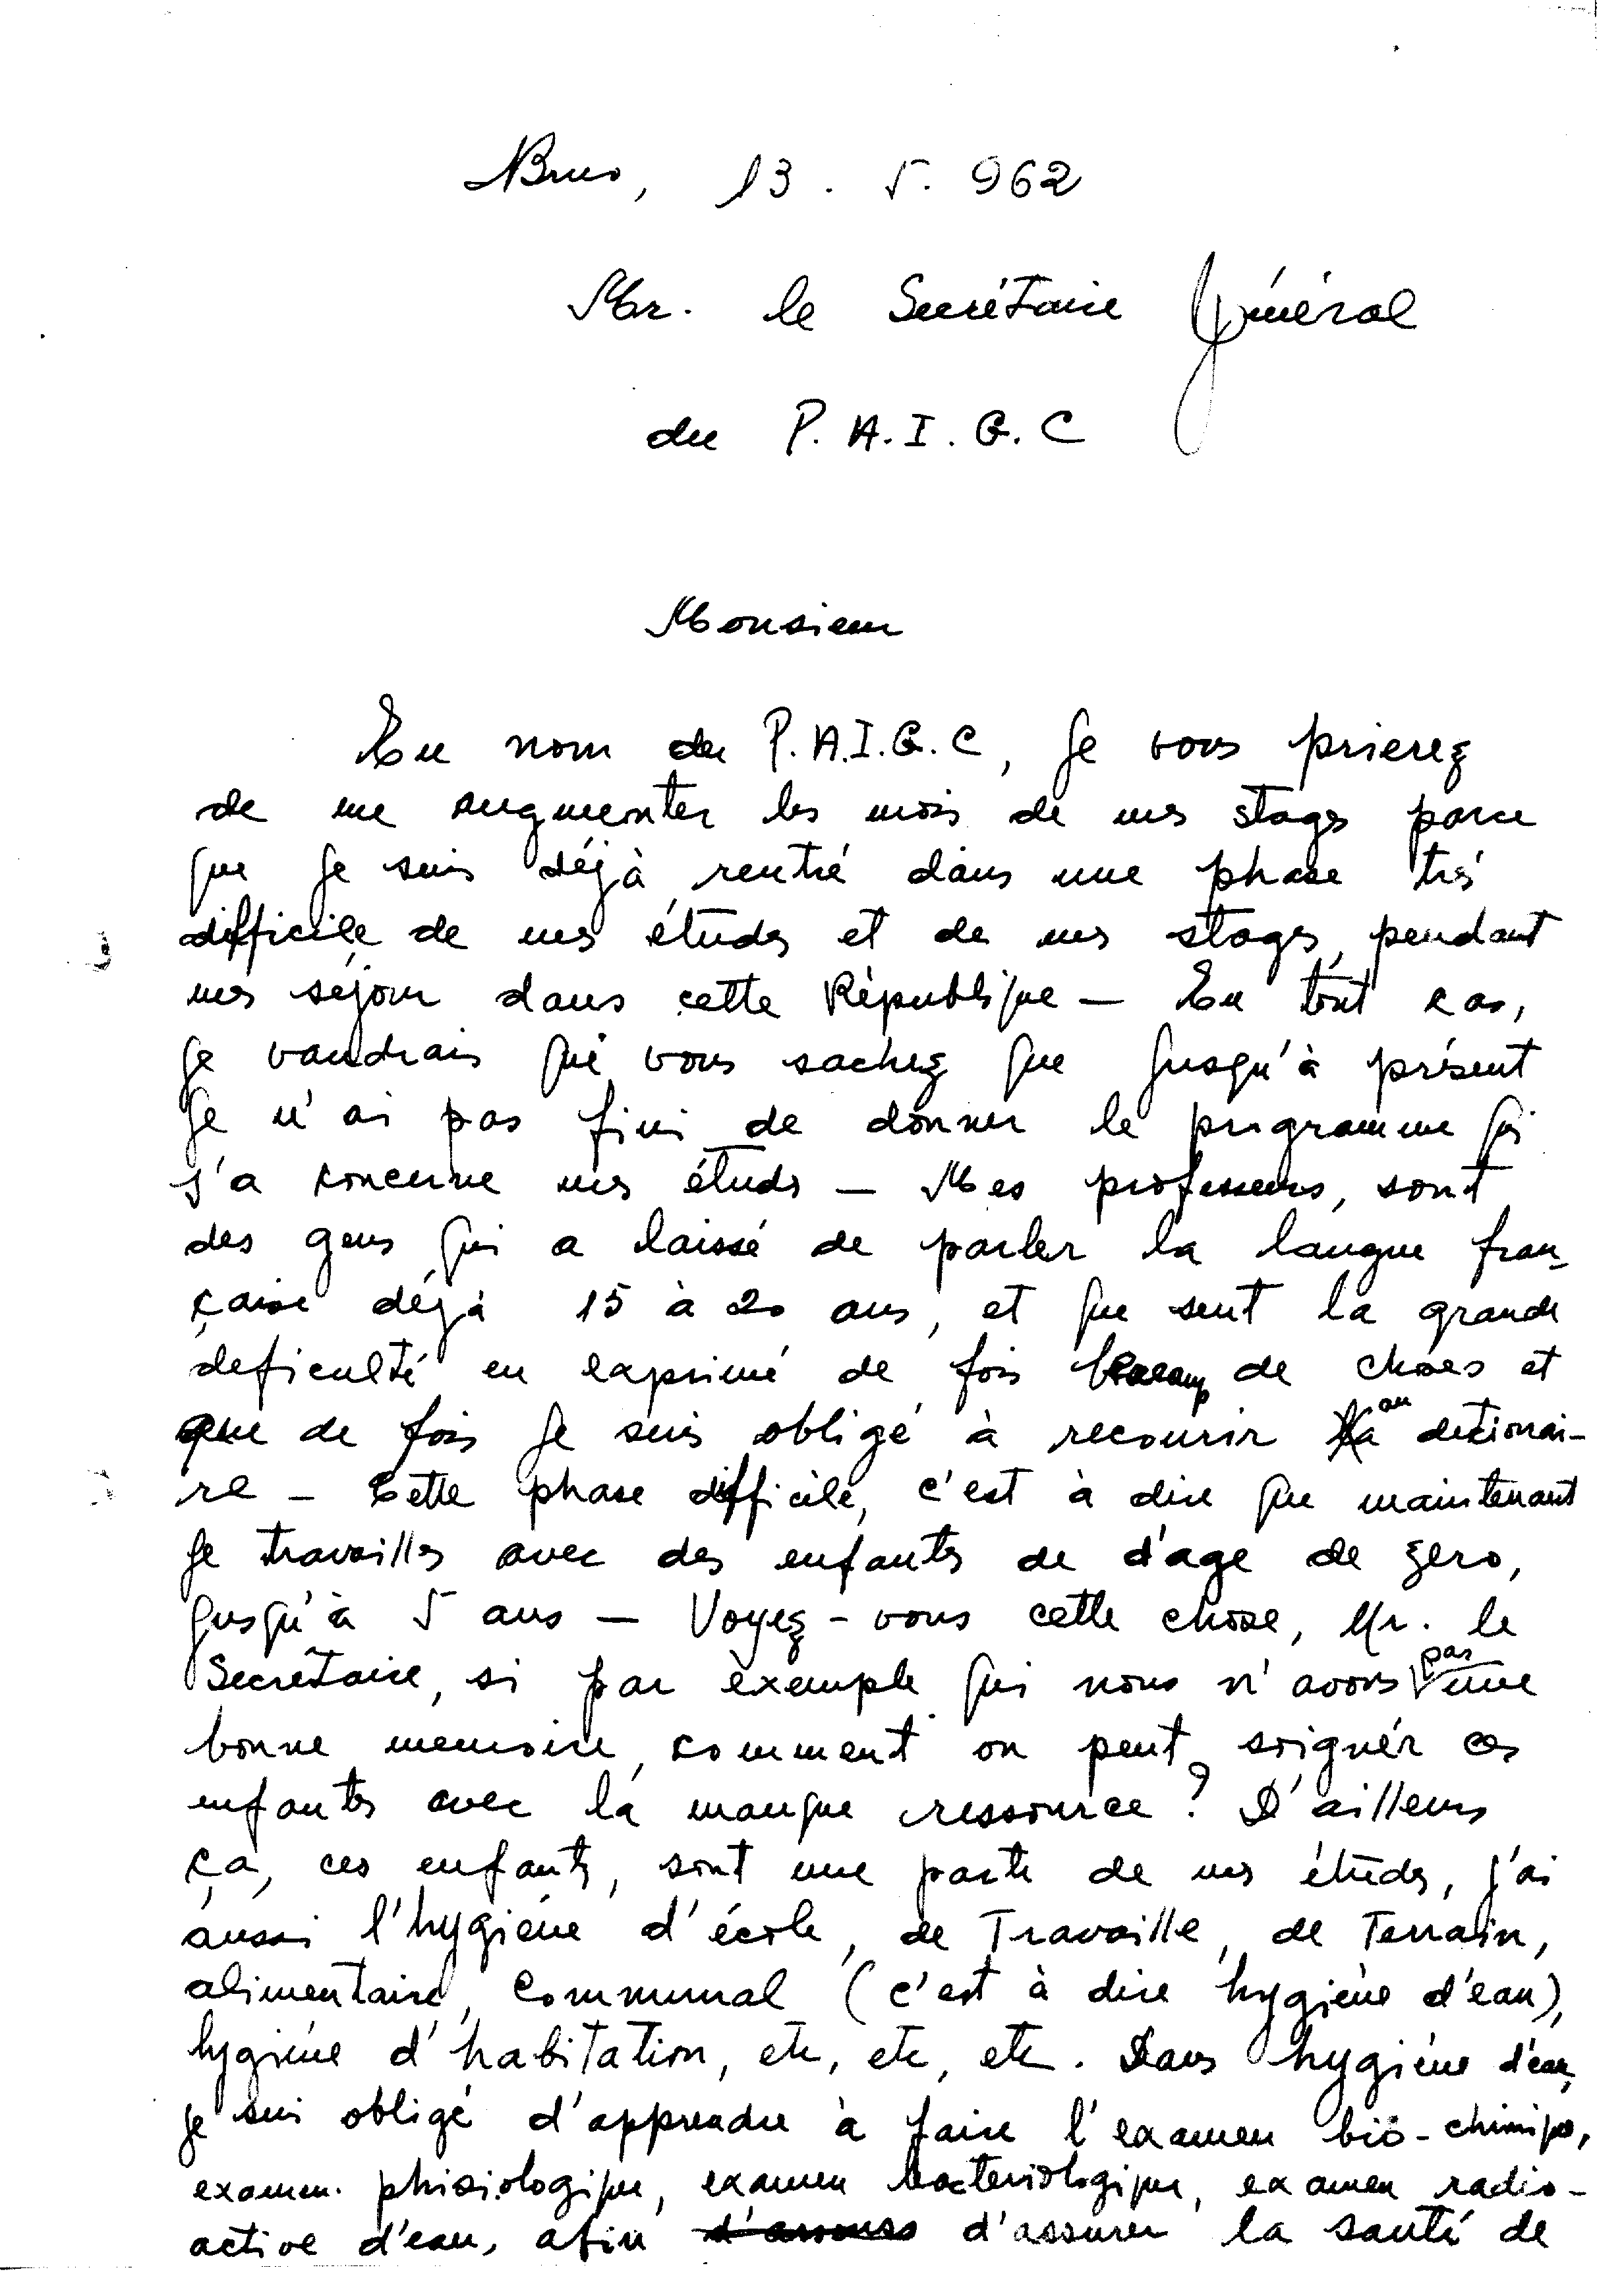 Brno, 13. 5. 962
Mr. le Secrétaire Général
du P. A. I. G. C
Monsieur
En nom du P.A.I.G.C, je vous prierez
de me augmenter les mois de mes stages parce
que je suis déjà rentré dans une phase trés
difficile de mes études et de mes stages, pendant
mes séjour dans cette République — En tout cas,
je vaudrais que vous sachez que jusqu'à présent
je n'ai pas fini de donner le programme qui
s'a concerne mes études — Mes professeurs, sont
des gens qui a laissé de parler la langue fran-
çaise déjà 15 à 20 ans, et que sent la grande
deficulté en exprimé de fois beaucoup de choses et
que de fois je suis obligé à recourir au dictionai-
re — Cette phase difficile, c'est à dire que maintenant
je travailles avec des enfants de d'age de zero,
jusqu'à 5 ans — Voyez-vous cette chose, Mr. le
Secretaire, si par exemple qui nous n'avons pas une
bonne memoire, comment on peut soignér ces
enfants avec la manque ressource ? D'ailleurs
ça, ces enfants, sont une parte de mes études, j'ai
aussi l'hygiéne d'école, de Travaille, de Terrain,
alimentaire, Communal (c'est à dire hygiéne d'eau),
hygiéne d'habitation, etc, etc, etc. Dans hygiéne d'eau,
je suis obligé d'apprendre à faire l'examen bio-chimique,
examen phisiologique, examen bacteriologique, examen radio-
active d'eau, afin d'assurer la santé de